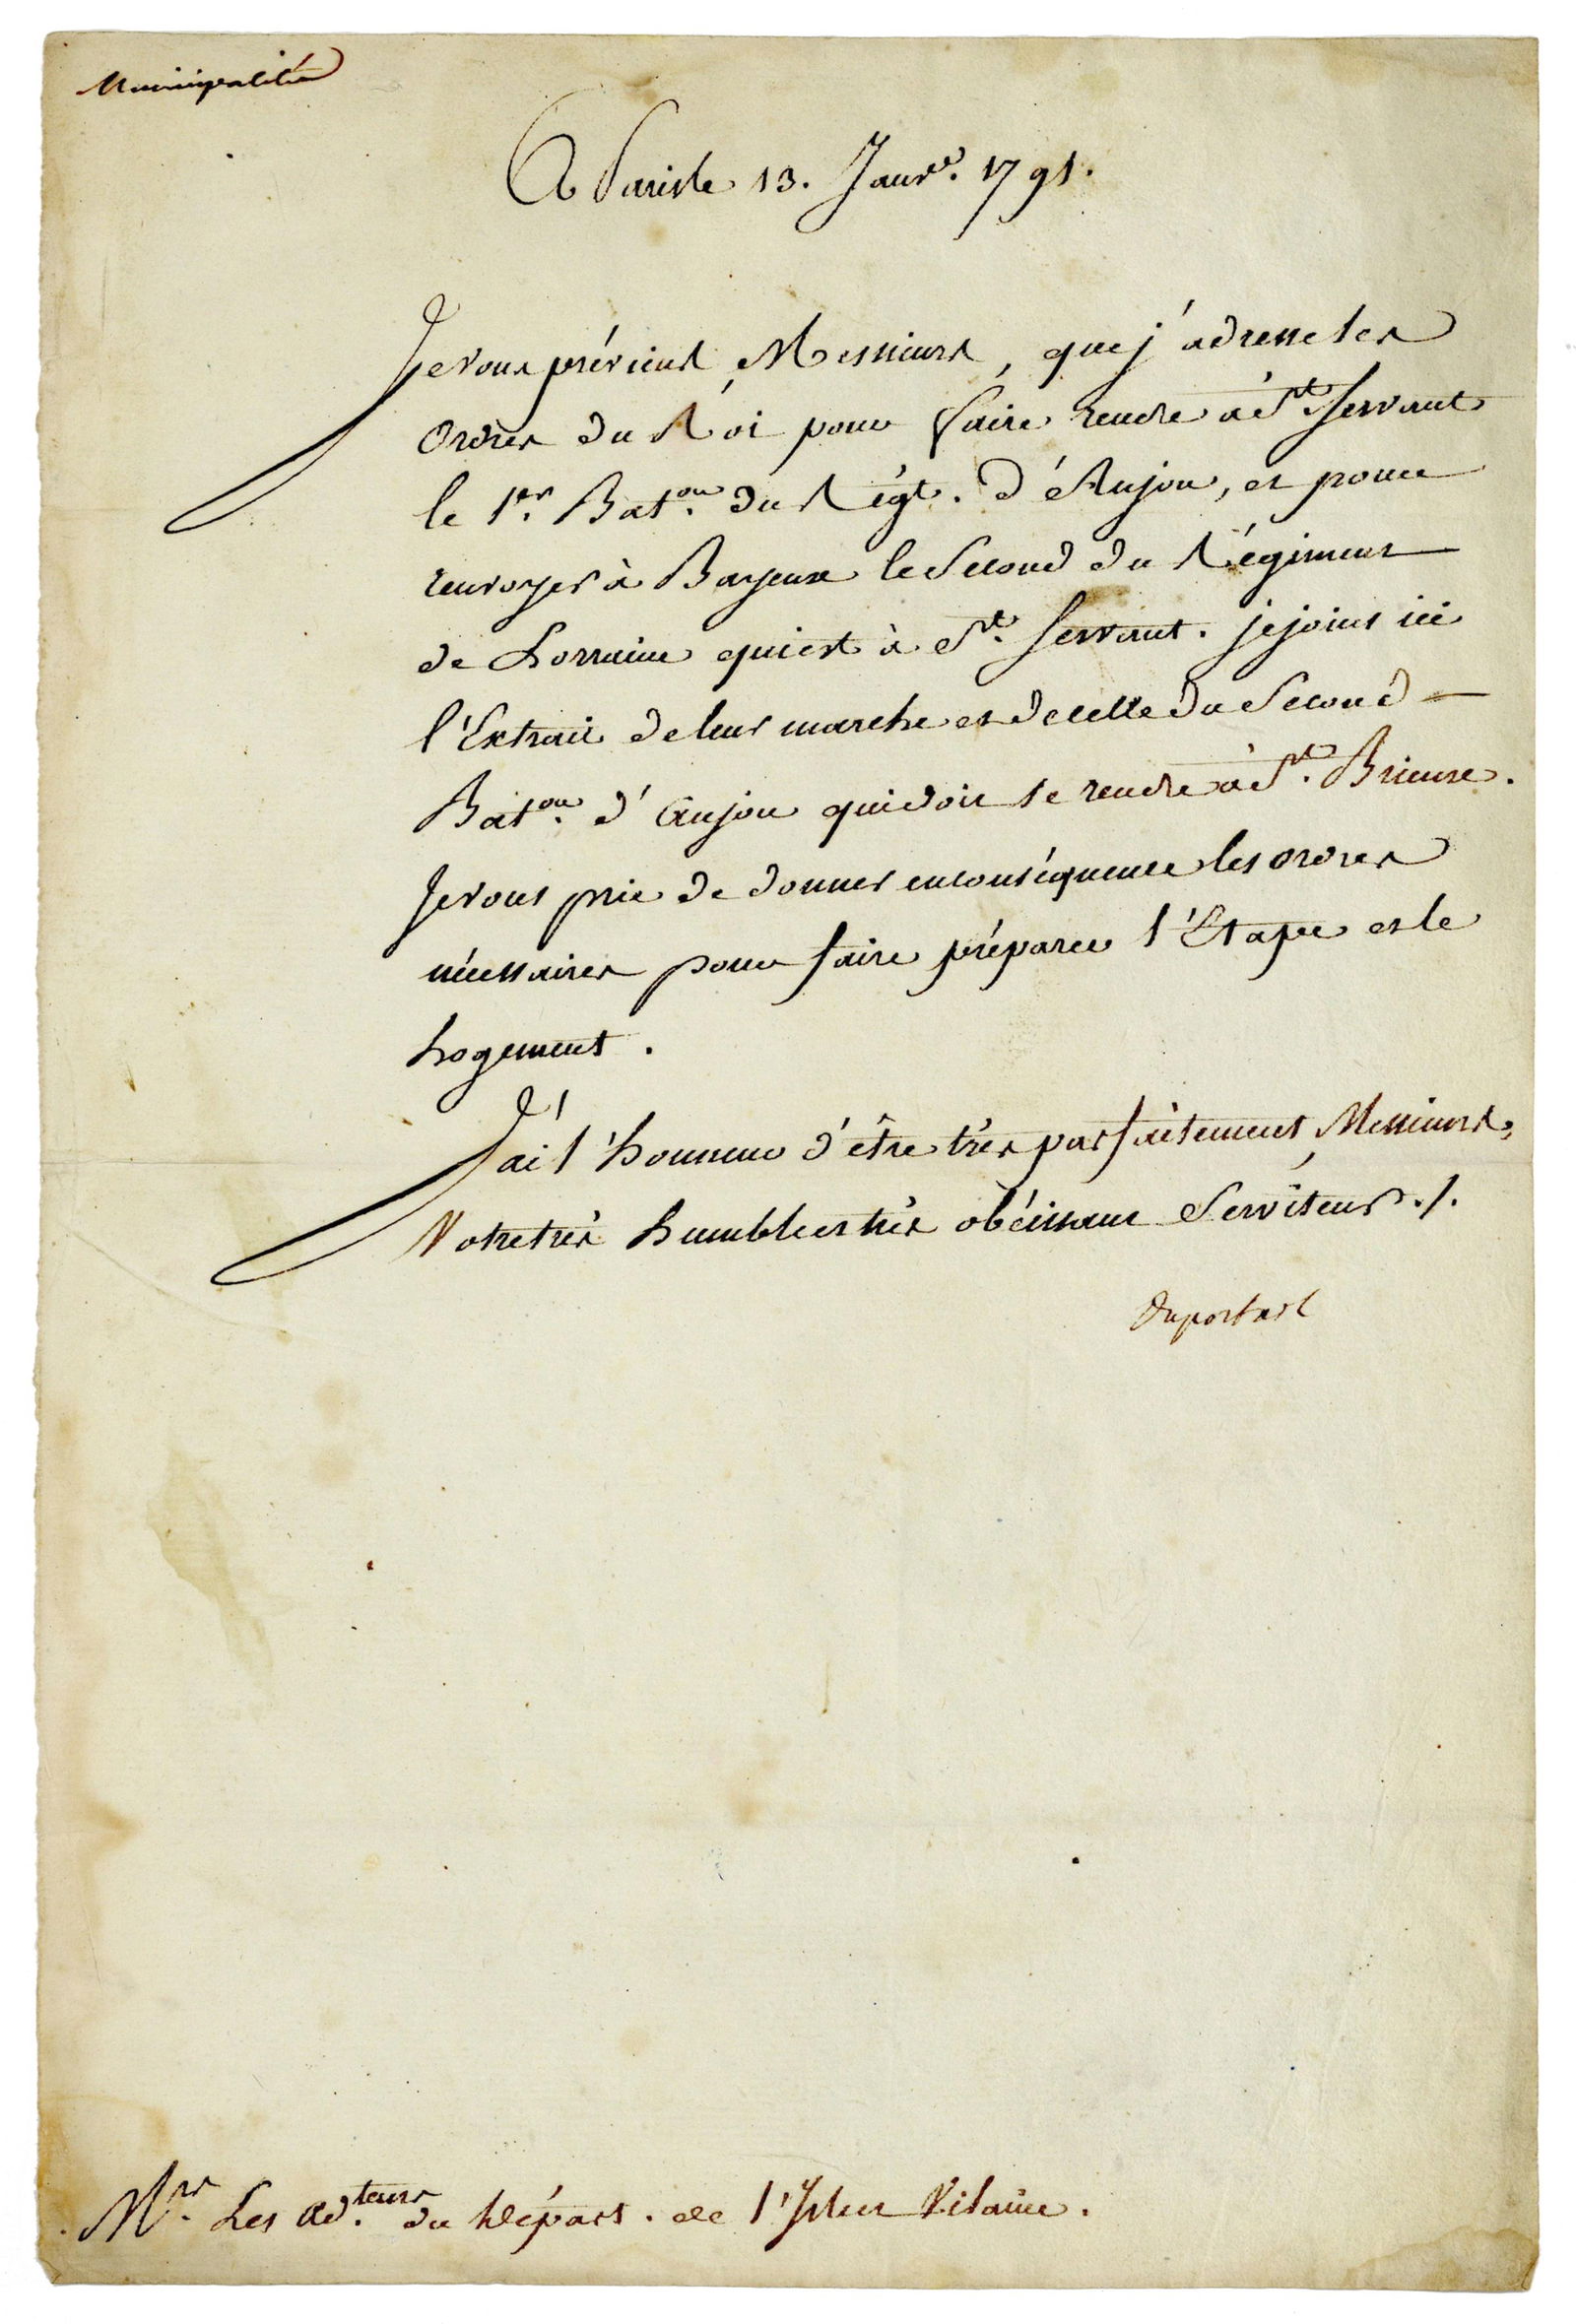 Municipalités
A Paris le 13. Janv.er 1791.
Je vous préviens, Messieurs, que j'adresse les
Ordres du Roi pour faire rendre à St. Servant
le 1er. Baton. du Régt. d'Anjou, et pour
renvoyer à Bayeux le Second du Régiment
de Lorraine qui est à St. Servant. je joins ici
l'Extrait de leur marche et de celle du Second
Baton. d'anjou qui doit se rendre à St. Brieux.
Je vous prie de donner en conséquence les ordres
nécessaires pour faire préparer l'Etape et le
Logement.
J'ai l'honneur d'être très parfaitement, Messieurs,
Votre très humble et très obéissant Serviteur./.
Duportail
Mrs. Les ad.teurs du Départ. de l'Isle et Vilaine.